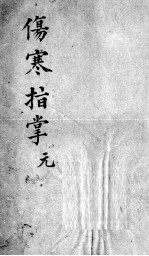 傷寒指掌 元